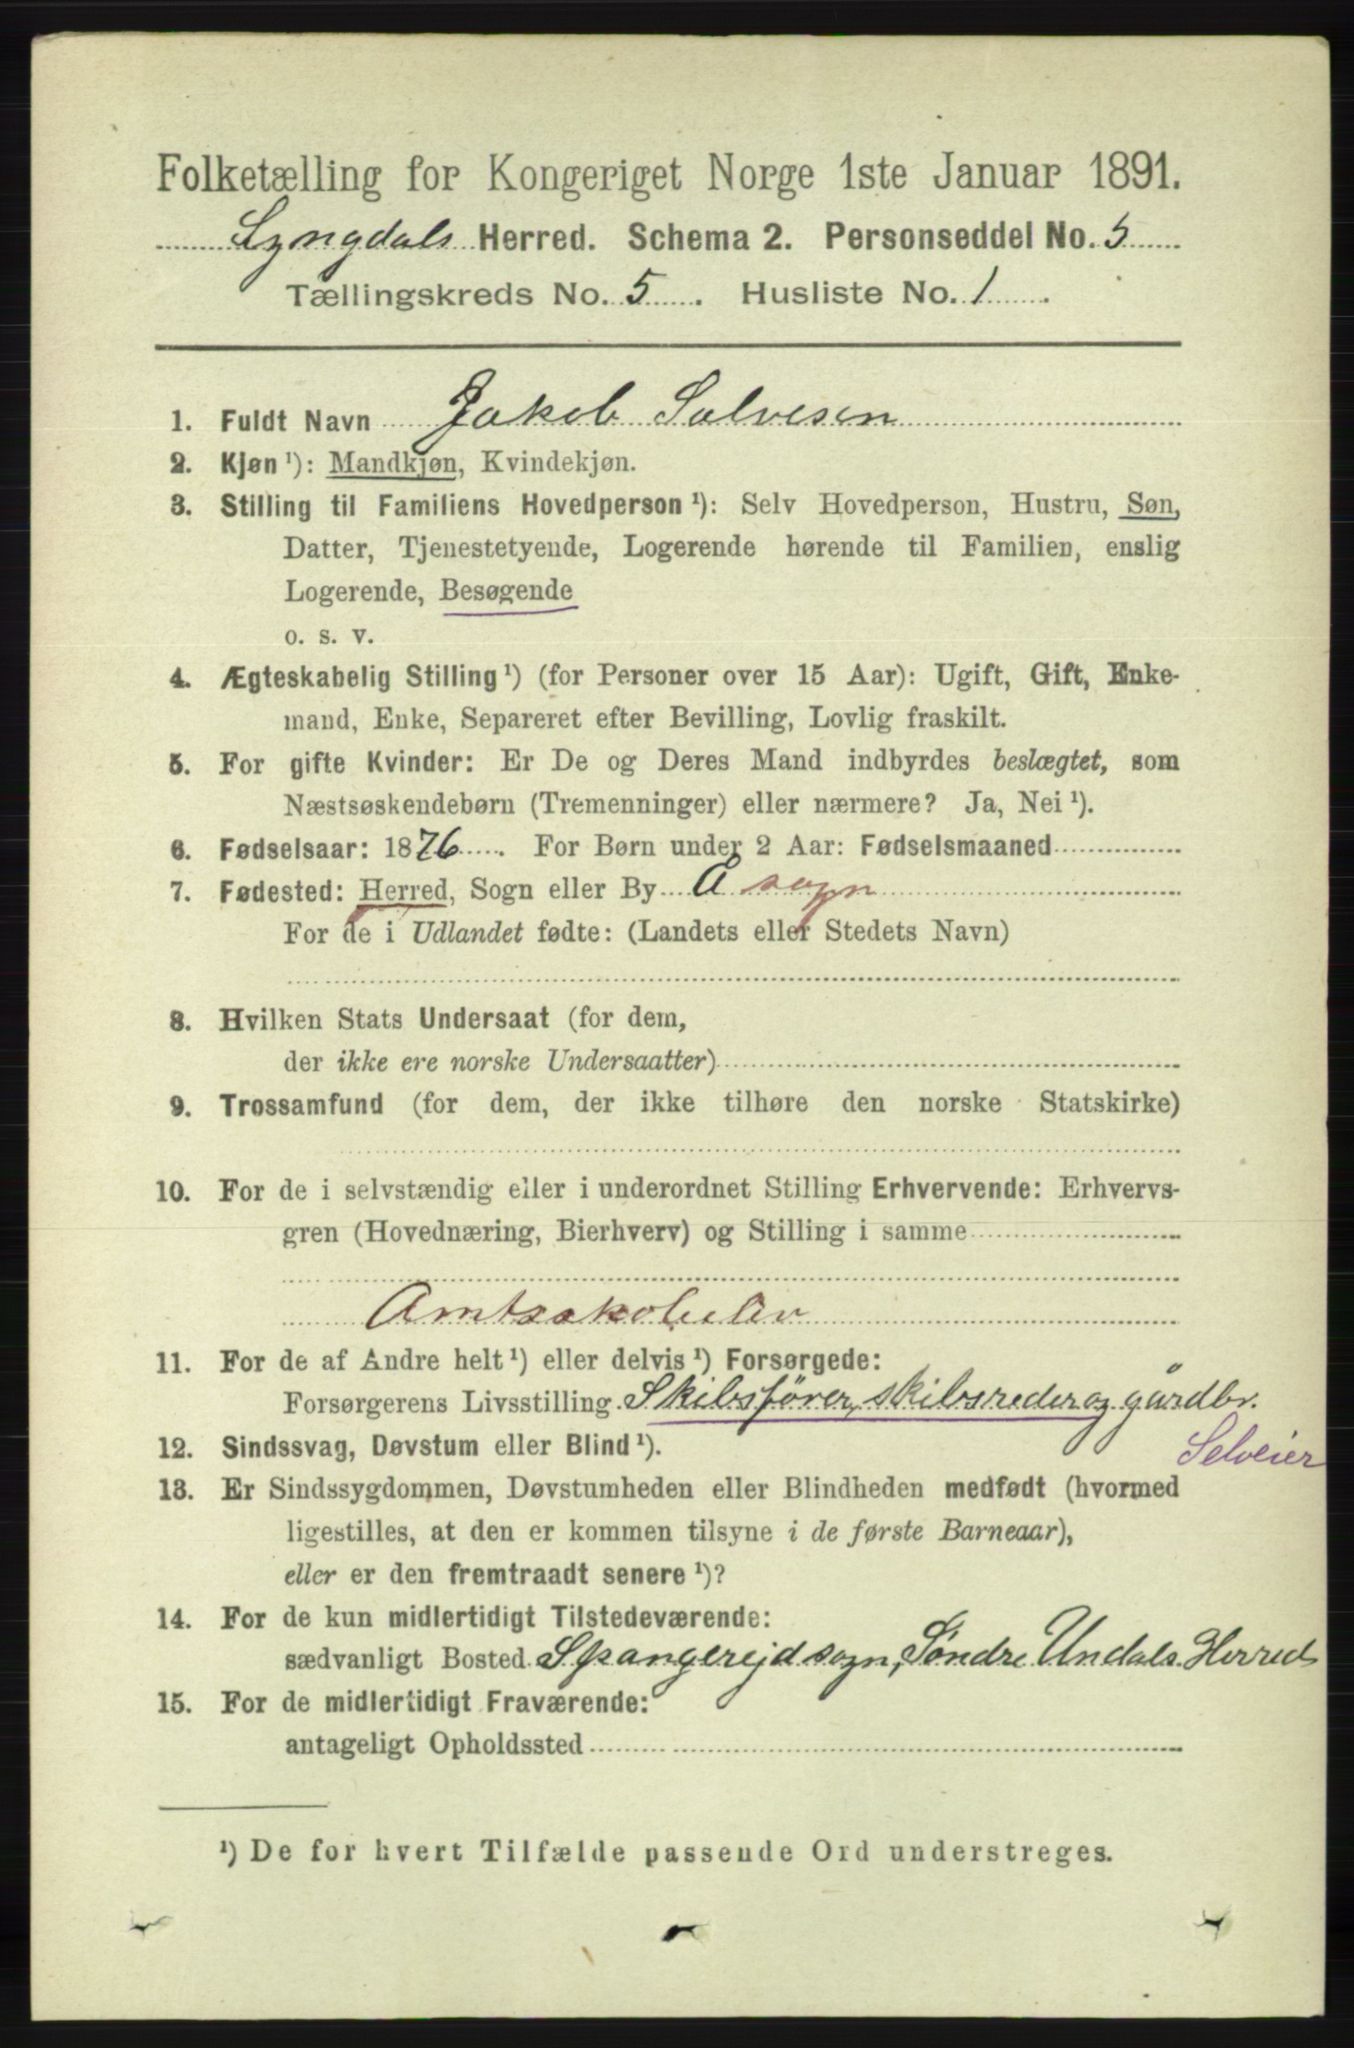 Folketælling for Kongeriget Norge 1ste Januar 1891.
Lyngdals Herred. Schema 2. Personseddel No. 5
Tællingskreds No. 5. Husliste No. 1.
1. Fuldt Navn Jakob Salvesen
2. Kjøn ¹): Mandkjøn, Kvindekjøn.
3. Stilling til Familiens Hovedperson ¹): Selv Hovedperson, Hustru, Søn,
Datter, Tjenestetyende, Logerende hørende til Familien, enslig
Logerende, Besøgende
o. s. v.
4. Ægteskabelig Stilling ¹) (for Personer over 15 Aar): Ugift, Gift, Enke-
mand, Enke, Separeret efter Bevilling, Lovlig fraskilt.
5. For gifte Kvinder: Er De og Deres Mand indbyrdes beslægtet, som
Næstsøskendebørn (Tremenninger) eller nærmere? Ja, Nei ¹).
6. Fødselsaar: 1876. For Børn under 2 Aar: Fødselsmaaned
7. Fødested: Herred, Sogn eller By Å sogn
For de i Udlandet fødte: (Landets eller Stedets Navn)
8. Hvilken Stats Undersaat (for dem,
der ikke ere norske Undersaatter)
9. Trossamfund (for dem, der ikke tilhøre den norske Statskirke)
10. For de i selvstændig eller i underordnet Stilling Erhvervende: Erhvervs-
gren (Hovednæring, Bierhverv) og Stilling i samme
Amtsskoleelev
11. For de af Andre helt ¹) eller delvis ¹) Forsørgede:
Forsørgerens Livsstilling Skibsfører, skibsreder og gårdbr.
Selveier
12. Sindssvag, Døvstum eller Blind ¹).
13. Er Sindssygdommen, Døvstumheden eller Blindheden medfødt (hvormed
ligestilles, at den er kommen tilsyne i de første Barneaar),
eller er den fremtraadt senere ¹)?
14. For de kun midlertidigt Tilstedeværende:
sædvanligt Bosted Spangerejd sogn, Söndre Undals Herred
15. For de midlertidigt Fraværende:
antageligt Opholdssted
¹) De for hvert Tilfælde passende Ord understreges.